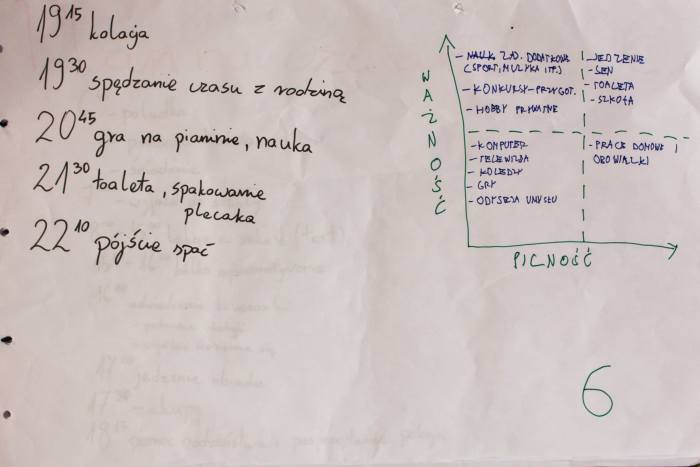 19 15 kolacja
19 30 spędzanie czasu z rodziną
20 45 gra na pianinie, nauka
21 30 toaleta, spakowanie
plecaka
22 10 pójście spać
WAŻNOŚĆ
- NAUK. ZAJ. DODATKOWE
(SPORT, MUZYKA ITP.)
- KONKURSY-PRZYGOT.
- HOBBY PRYWATNE
- JEDZENIE
- SEN
- TOALETA
- SZKOŁA
- KOMPUTER
- TELEWIZJA
- KOLEDZY
- GRY
- ODYSEJA UMYSŁU
- PRACE DOMOWE I
OBOWIĄZKI
PILNOŚĆ
6